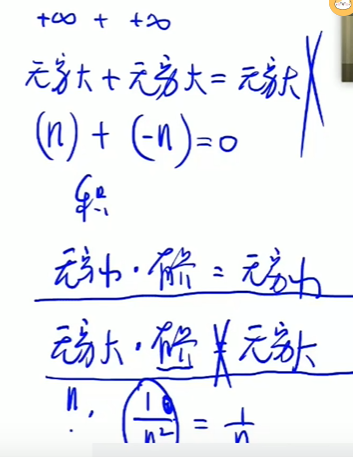 +∞ + +∞
无穷大+无穷大=无穷大
(n) + (-n)=0
无穷小·有界=无穷小
无穷大·有界≠无穷大
n · 1/n² = 1/n